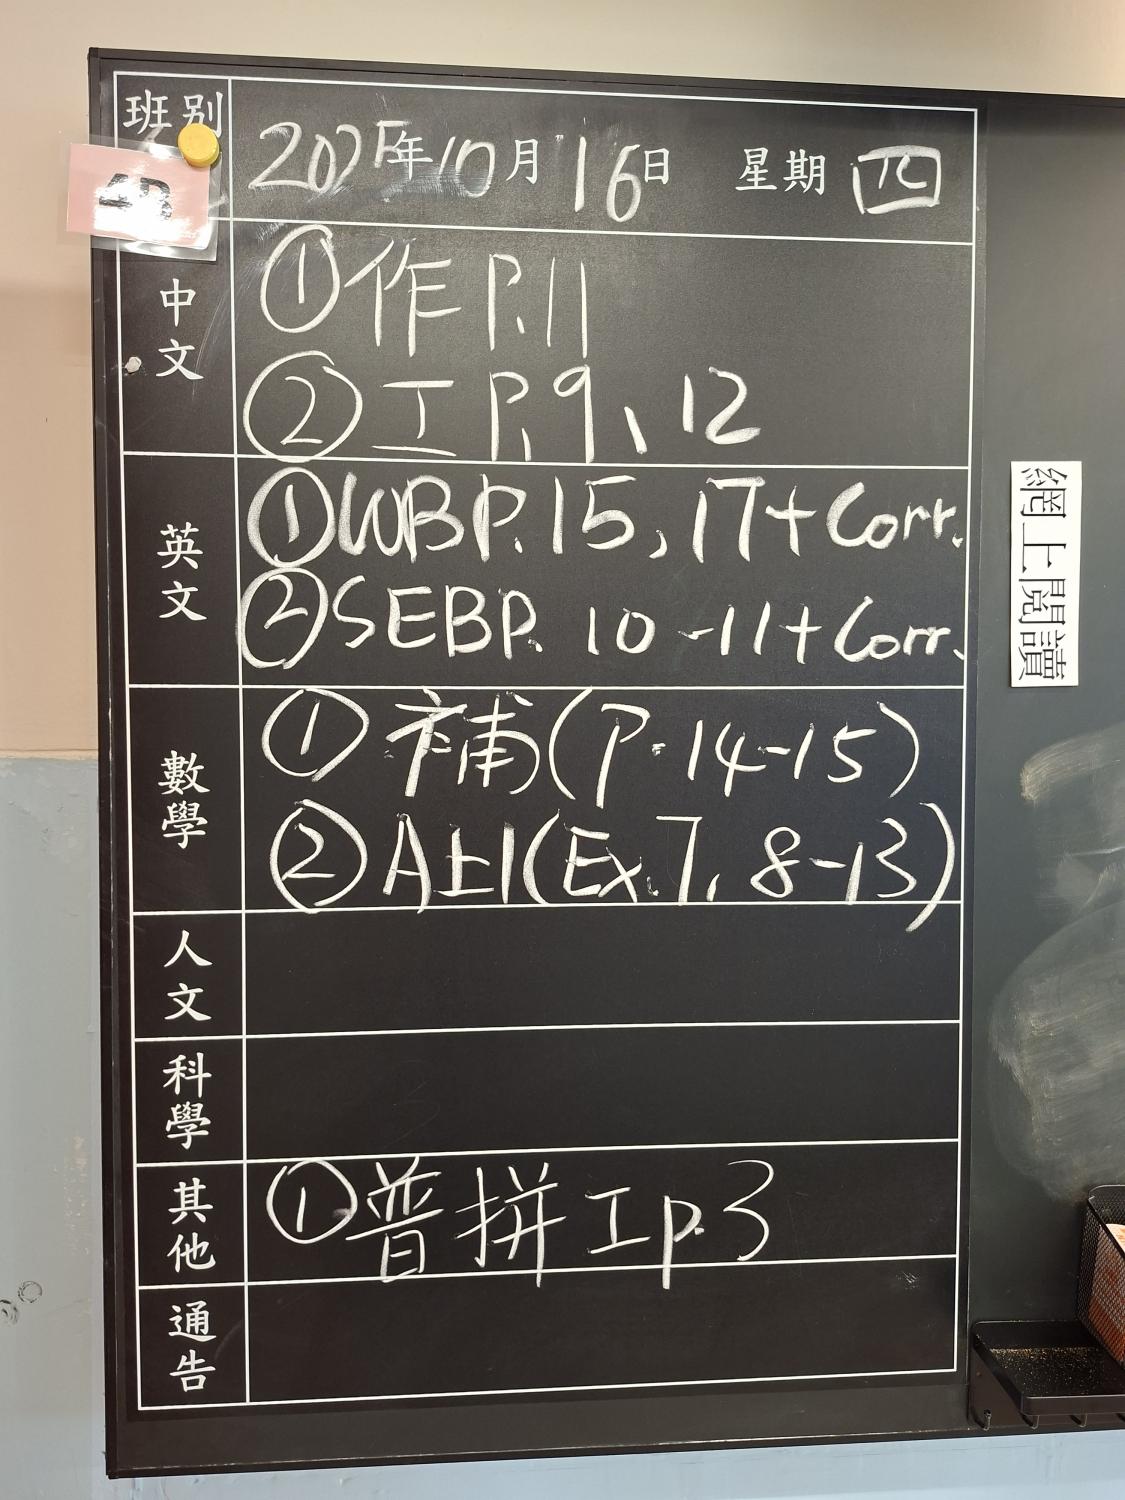 班別
2025年10月16日 星期四
中文
①作 P.11
②工 P.9、12
英文
①WB P.15, 17+Corr.
②SEB P. 10-11+Corr.
數學
①補(P.14-15)
②A上1(Ex.7, 8-13)
人文
科學
其他
①普拼工p.3
通告
網上閱讀